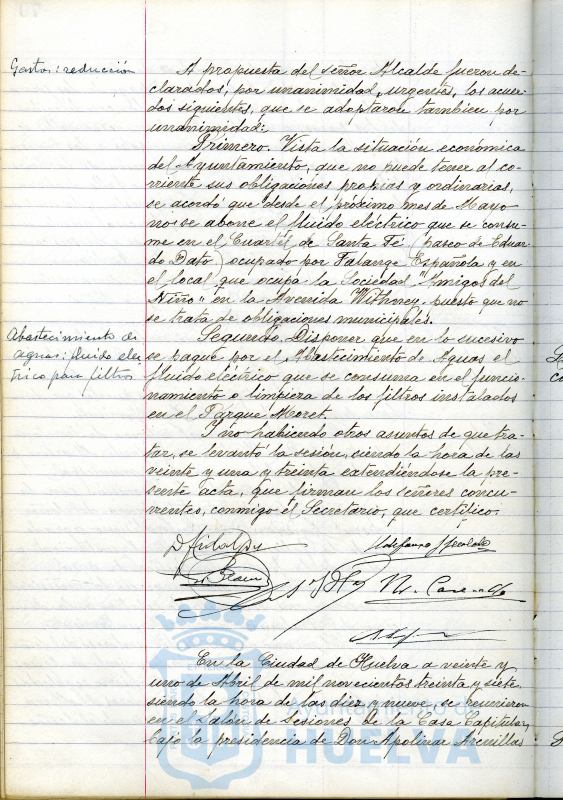 Gastos: reducción
A propuesta del señor Alcalde fueron de-
clarados, por unanimidad, urgentes, los acuer-
dos siguientes, que se adoptaron tambien por
unanimidad:
Primero. Vista la situación económica
del Ayuntamiento, que no puede tener al co-
rriente sus obligaciones propias y ordinarias,
se acordó que desde el próximo mes de Mayo
no se abone el fluido eléctrico que se consu-
me en el Cuartel de Santa Fé (paseo de Eduar-
do Dato) ocupado por Falange Española y en
el local que ocupa la Sociedad "Amigos del
Niño" en la Avenida Withoney, puesto que no
se trata de obligaciones municipales.
Abastecimiento de
aguas: fluido eléc-
trico para filtros
Segundo. Disponer que en lo sucesivo
se pague por el Abastecimiento de Aguas el
fluido eléctrico que se consuma en el funcio-
namiento o limpieza de los filtros instalados
en el Parque Moret.
Y no habiendo otros asuntos de que tra-
tar, se levantó la sesión, siendo la hora de las
veinte y una y treinta extendiéndose la pre-
sente acta, que firman los señores concu-
rrentes, conmigo el Secretario, que certifico.
En la Ciudad de Huelva a veinte y
uno de Abril de mil novecientos treinta y siete,
siendo la hora de las diez y nueve, se reunieron
en el Salón de Sesiones de la Casa Capitular,
bajo la presidencia de Don Apolinar Arenillas
Ayuntamiento de
HUELVA